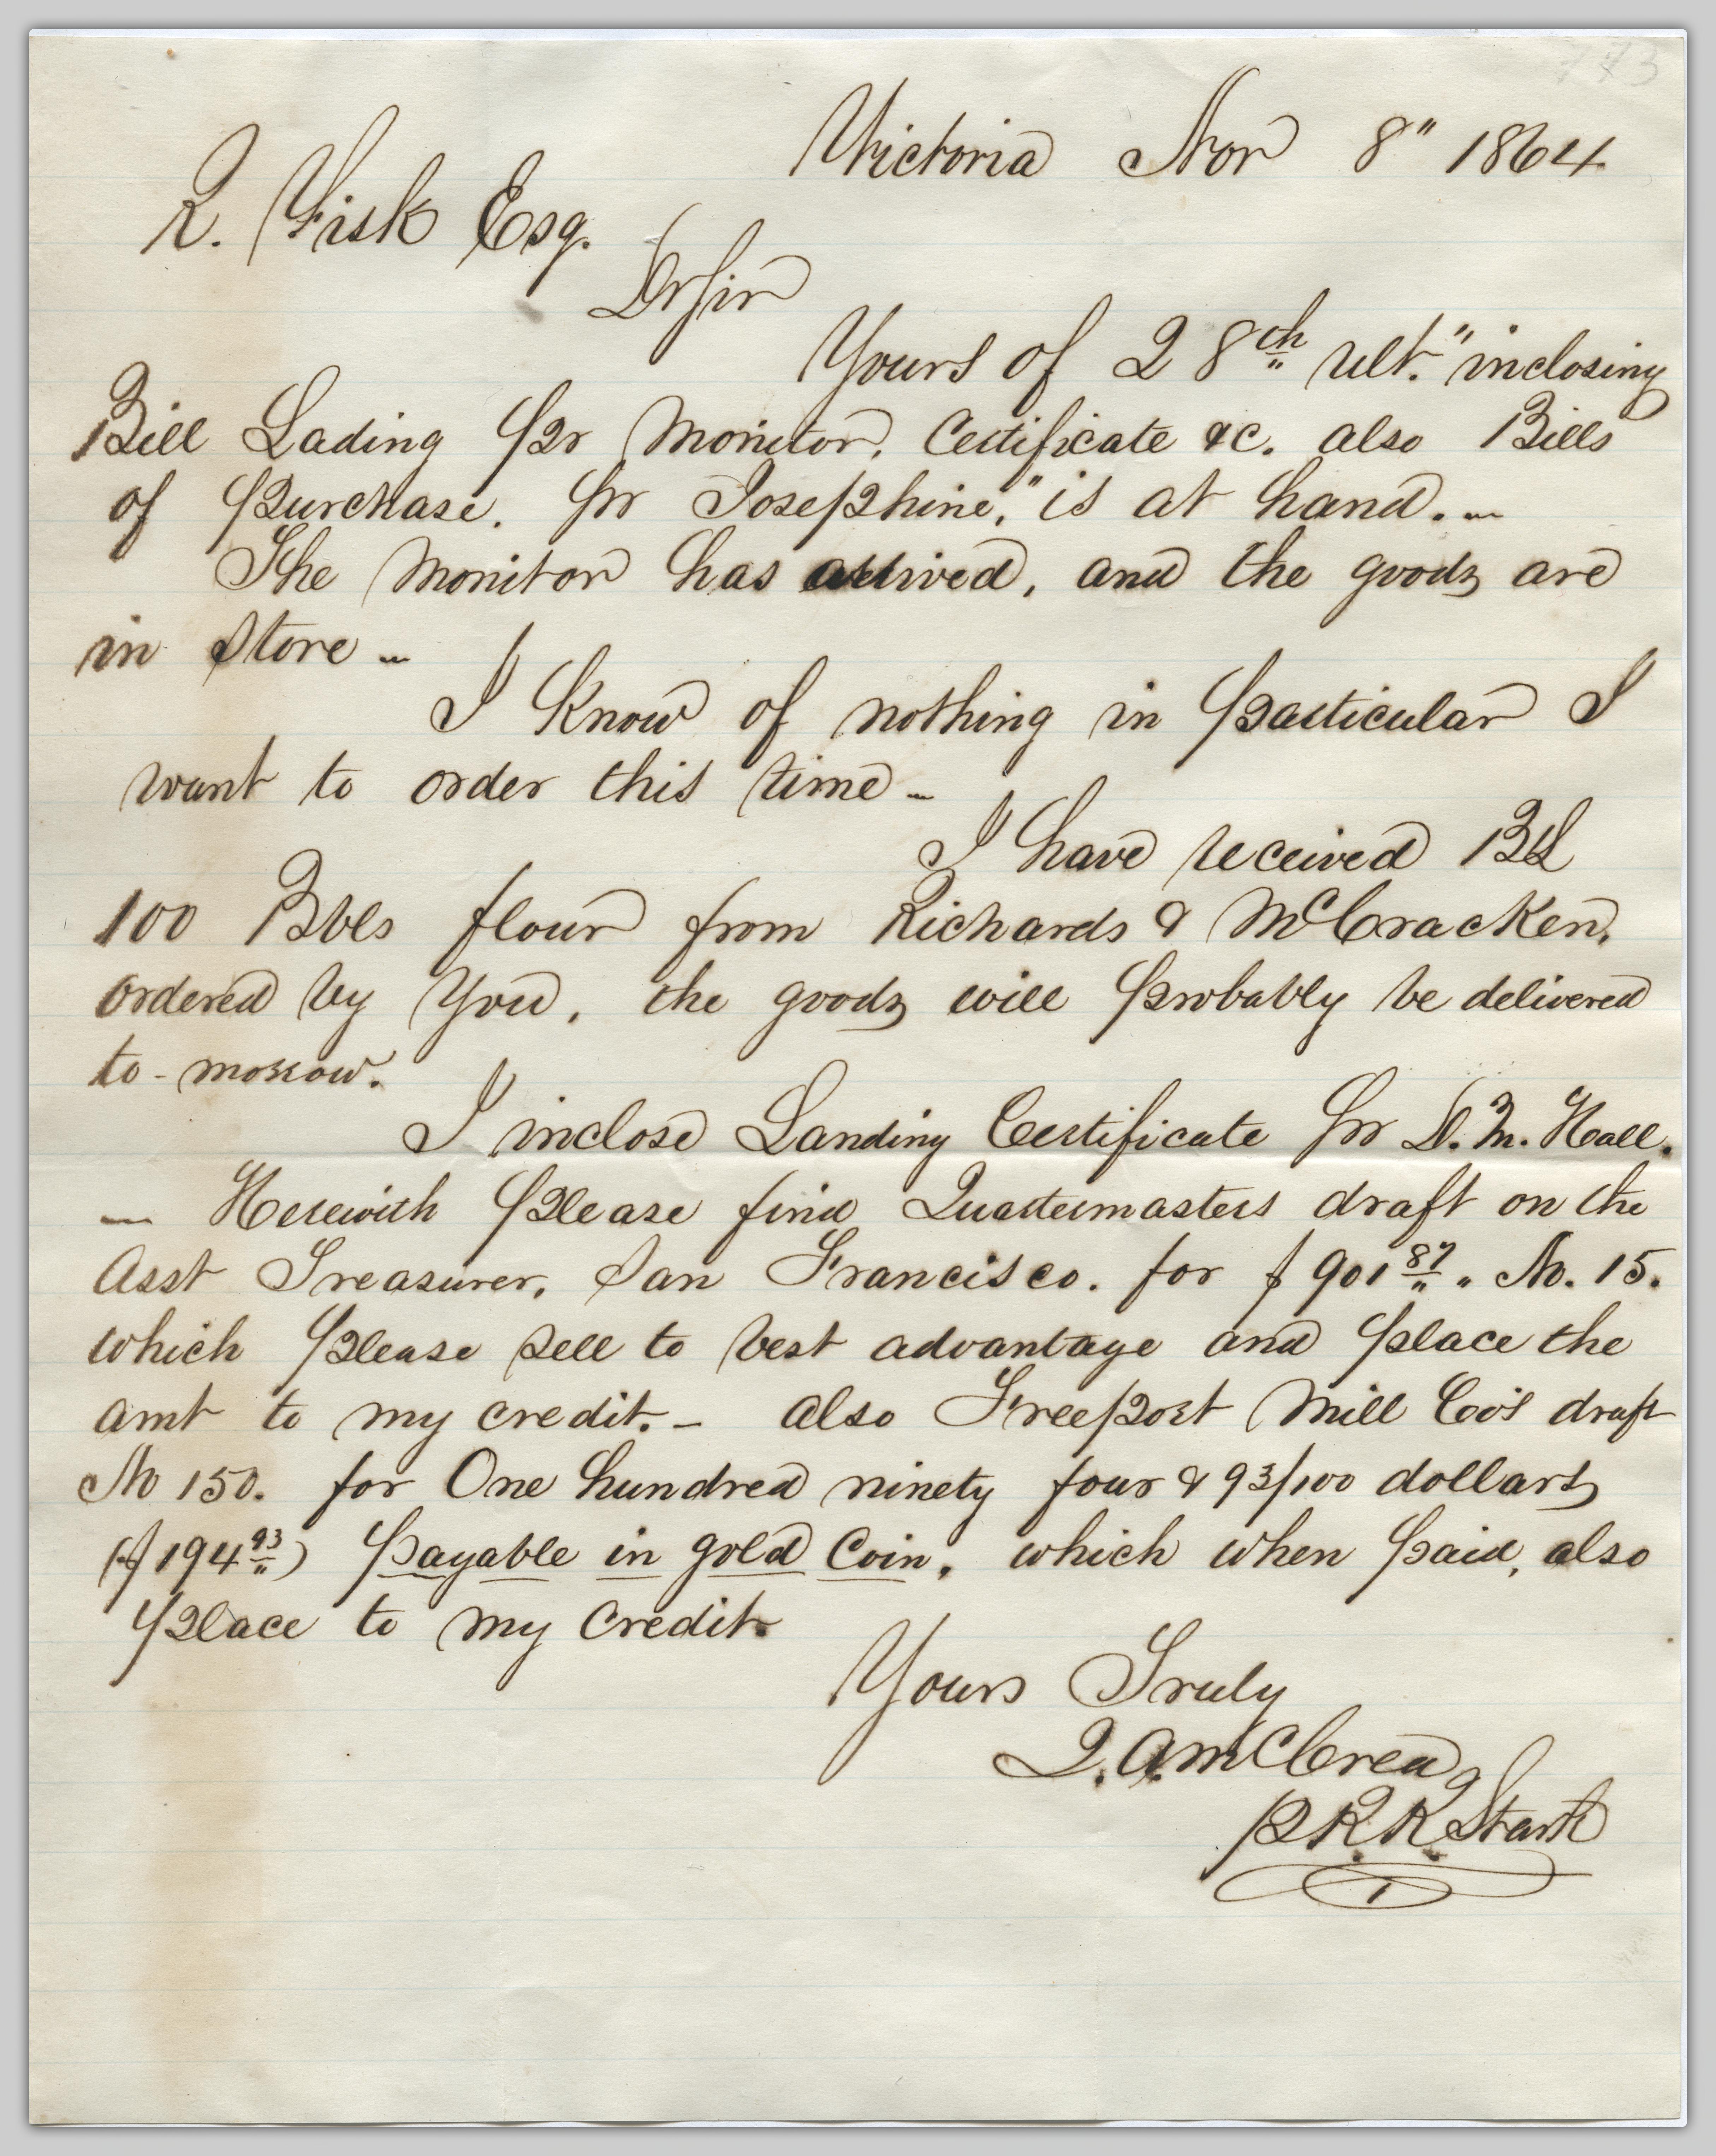 773
Victoria Nov 8" 1864
R. Fisk Esq.
Dr Sir
Yours of 28th ult." inclosing
Bill Lading Pr Monitor, Certificate &c. also Bills
of Purchase. Pr Josephine," is at hand. —
The Monitor has arrived, and the goods are
in Store —
I Know of nothing in Particular I
want to order this time —
I have received BL
100 Bbls flour from Richards & McCracken,
ordered by You, the goods will Probably be delivered
to-morrow.
I inclose Landing Certificate Pr D. M. Hall.
— Herewith Please find Quartermasters draft on the
Asst Treasurer, San Francisco. for $901 87/" . No. 15.
which Please sell to best advantage and Place the
amt to my credit. — also Freeport Mill Co's draft
No 150. for One hundred ninety four & 93/100 dollars
($194 93/") Payable in gold Coin, which when Paid, also
Place to my Credit.
Yours Truly
J. A. McCrea
P R. R. Stark